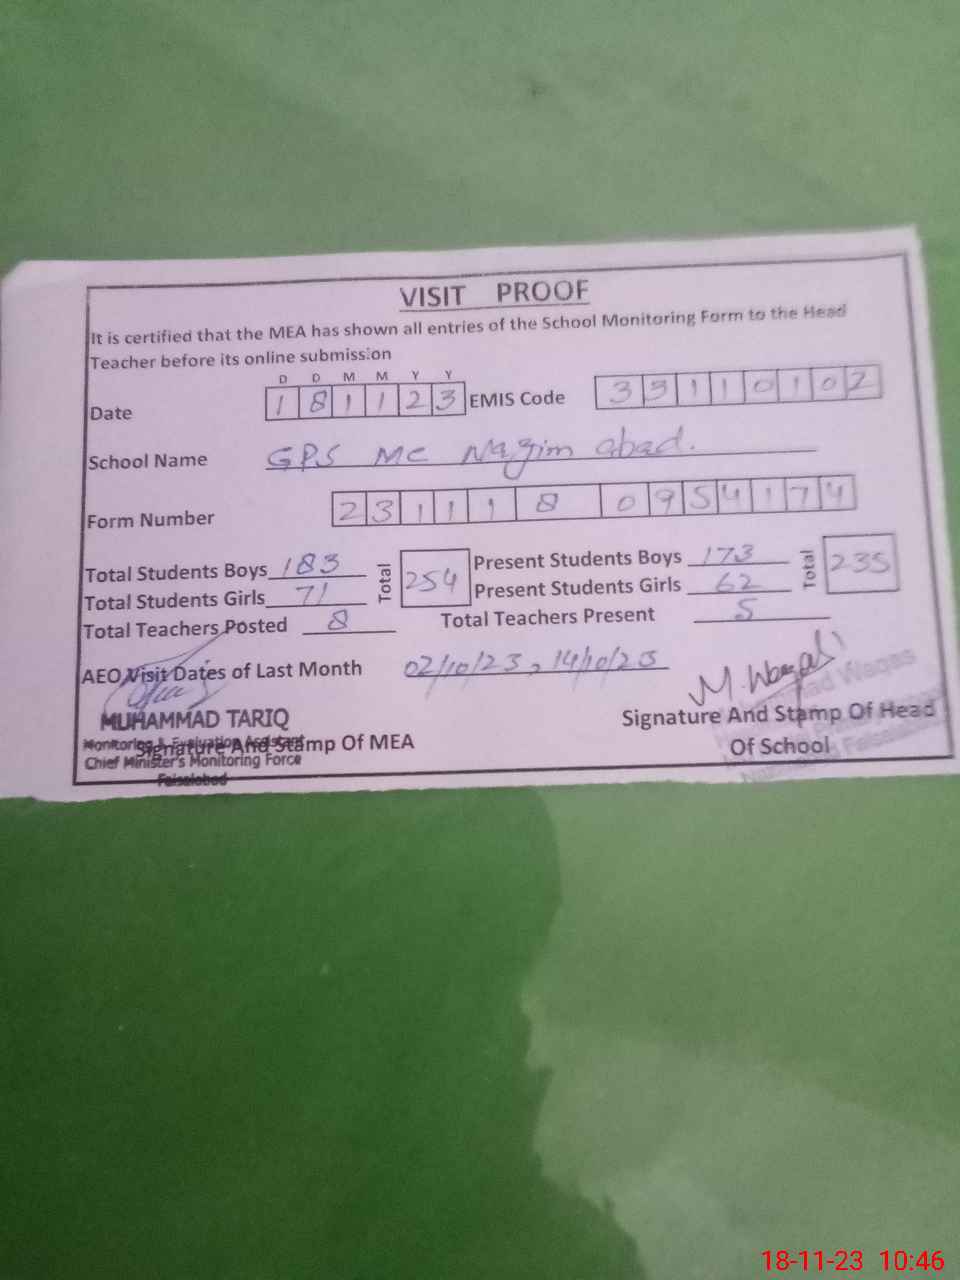 VISIT PROOF
It is certified that the MEA has shown all entries of the School Monitoring Form to the Head
Teacher before its online submission
D D M M Y Y
Date 1 8 1 1 2 3 EMIS Code 3 3 1 1 0 1 0 2
School Name GPS MC Nazim abad.
Form Number 2 3 1 1 1 8 0 9 5 4 1 7 4
Total Students Boys 183 Total 254 Present Students Boys 173 Total 235
Total Students Girls 71 Present Students Girls 62
Total Teachers Posted 8 Total Teachers Present 5
AEO Visit Dates of Last Month 02/10/23, 14/10/23
M. Waqas
MUHAMMAD TARIQ
Monitoring & Evaluation Assistant
Signature And Stamp Of MEA
Chief Minister's Monitoring Force
Faisalabad
Waqas
Signature And Stamp Of Head
Of School
Faisalabad
18-11-23 10:46